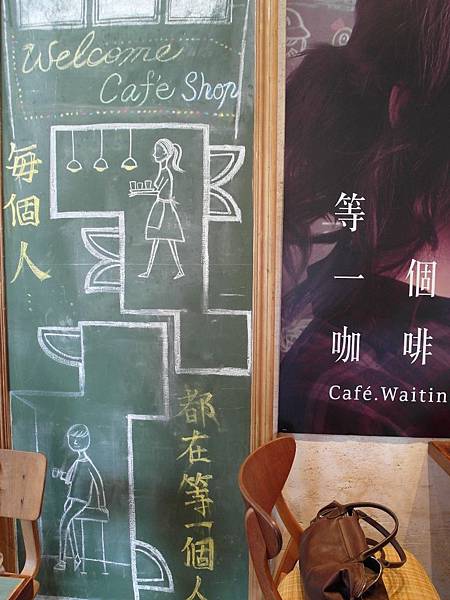 Welcome
Café Shop
每個人…
都在等一個人
等一個
咖啡
Café.Waitin